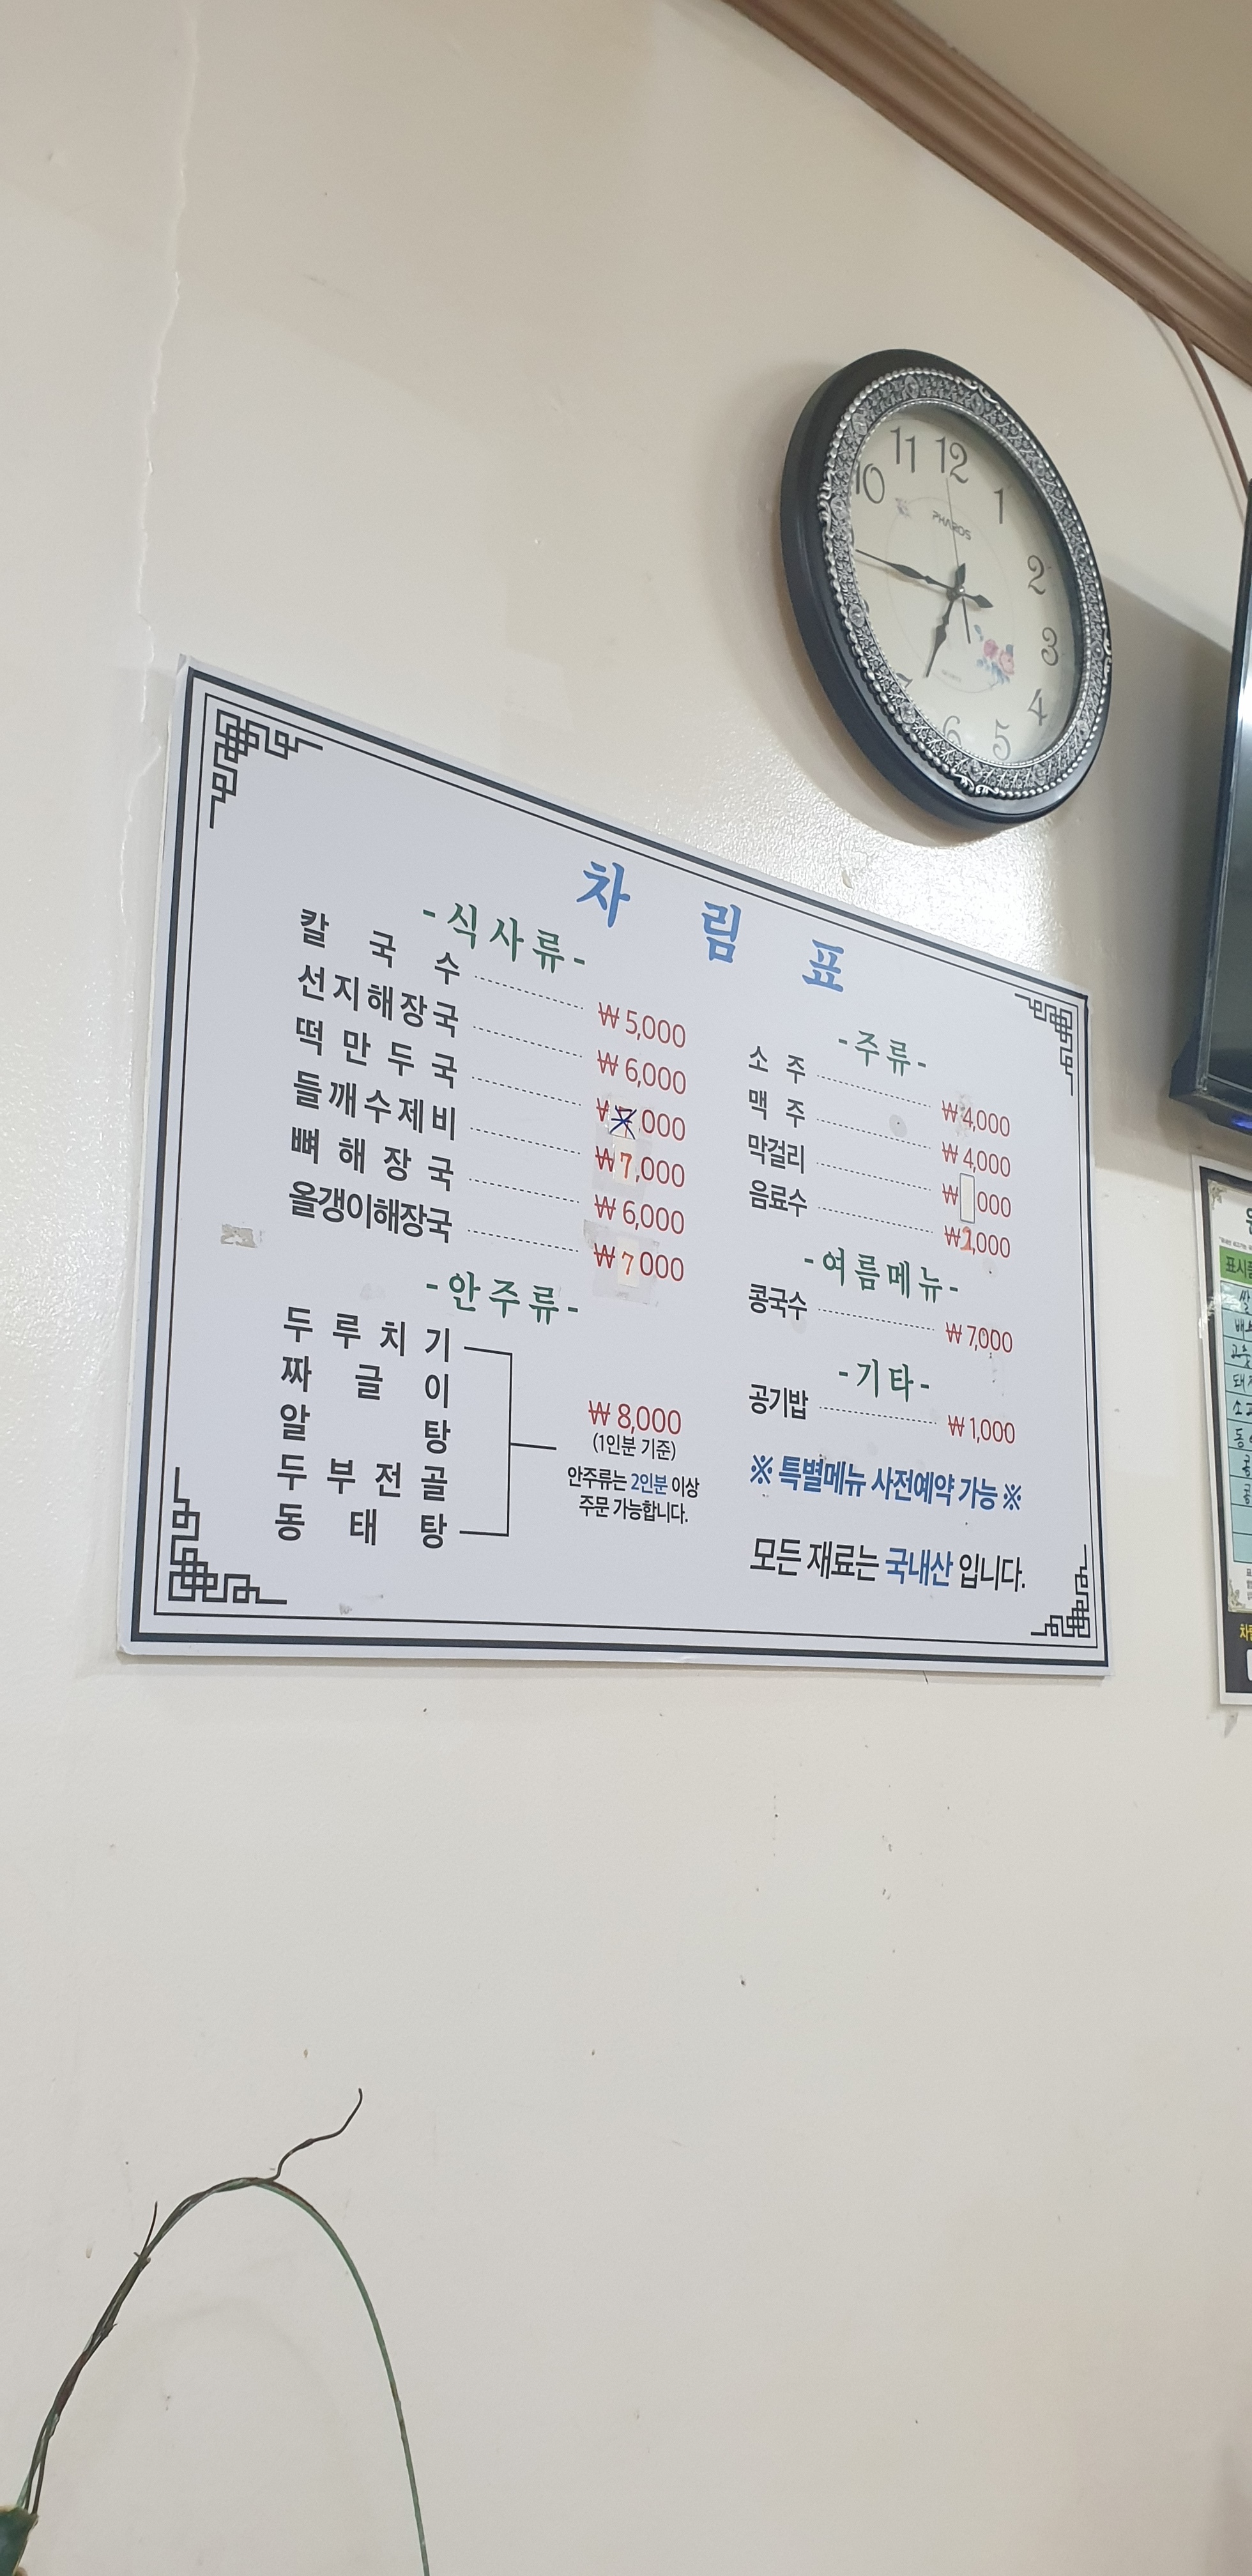 11 12 1
10 2
PHAROS
3
4
6 5
차 림 표
-식사류-
칼 국 수 ₩5,000
선지해장국 ₩6,000
떡 만 두 국 ,000
들깨수제비 ₩7,000
뼈 해 장 국 ₩6,000
올갱이해장국 ₩7000
-안주류-
두 루 치 기
짜 글 이
알 탕
두 부 전 골
동 태 탕
₩8,000
(1인분 기준)
안주류는 2인분 이상
주문 가능합니다.
-주류-
소 주 ₩4,000
맥 주 ₩4,000
막걸리 ₩ 000
음료수 ₩1,000
-여름메뉴-
콩국수 ₩7,000
-기타-
공기밥 ₩1,000
※ 특별메뉴 사전예약 가능 ※
모든 재료는 국내산 입니다.